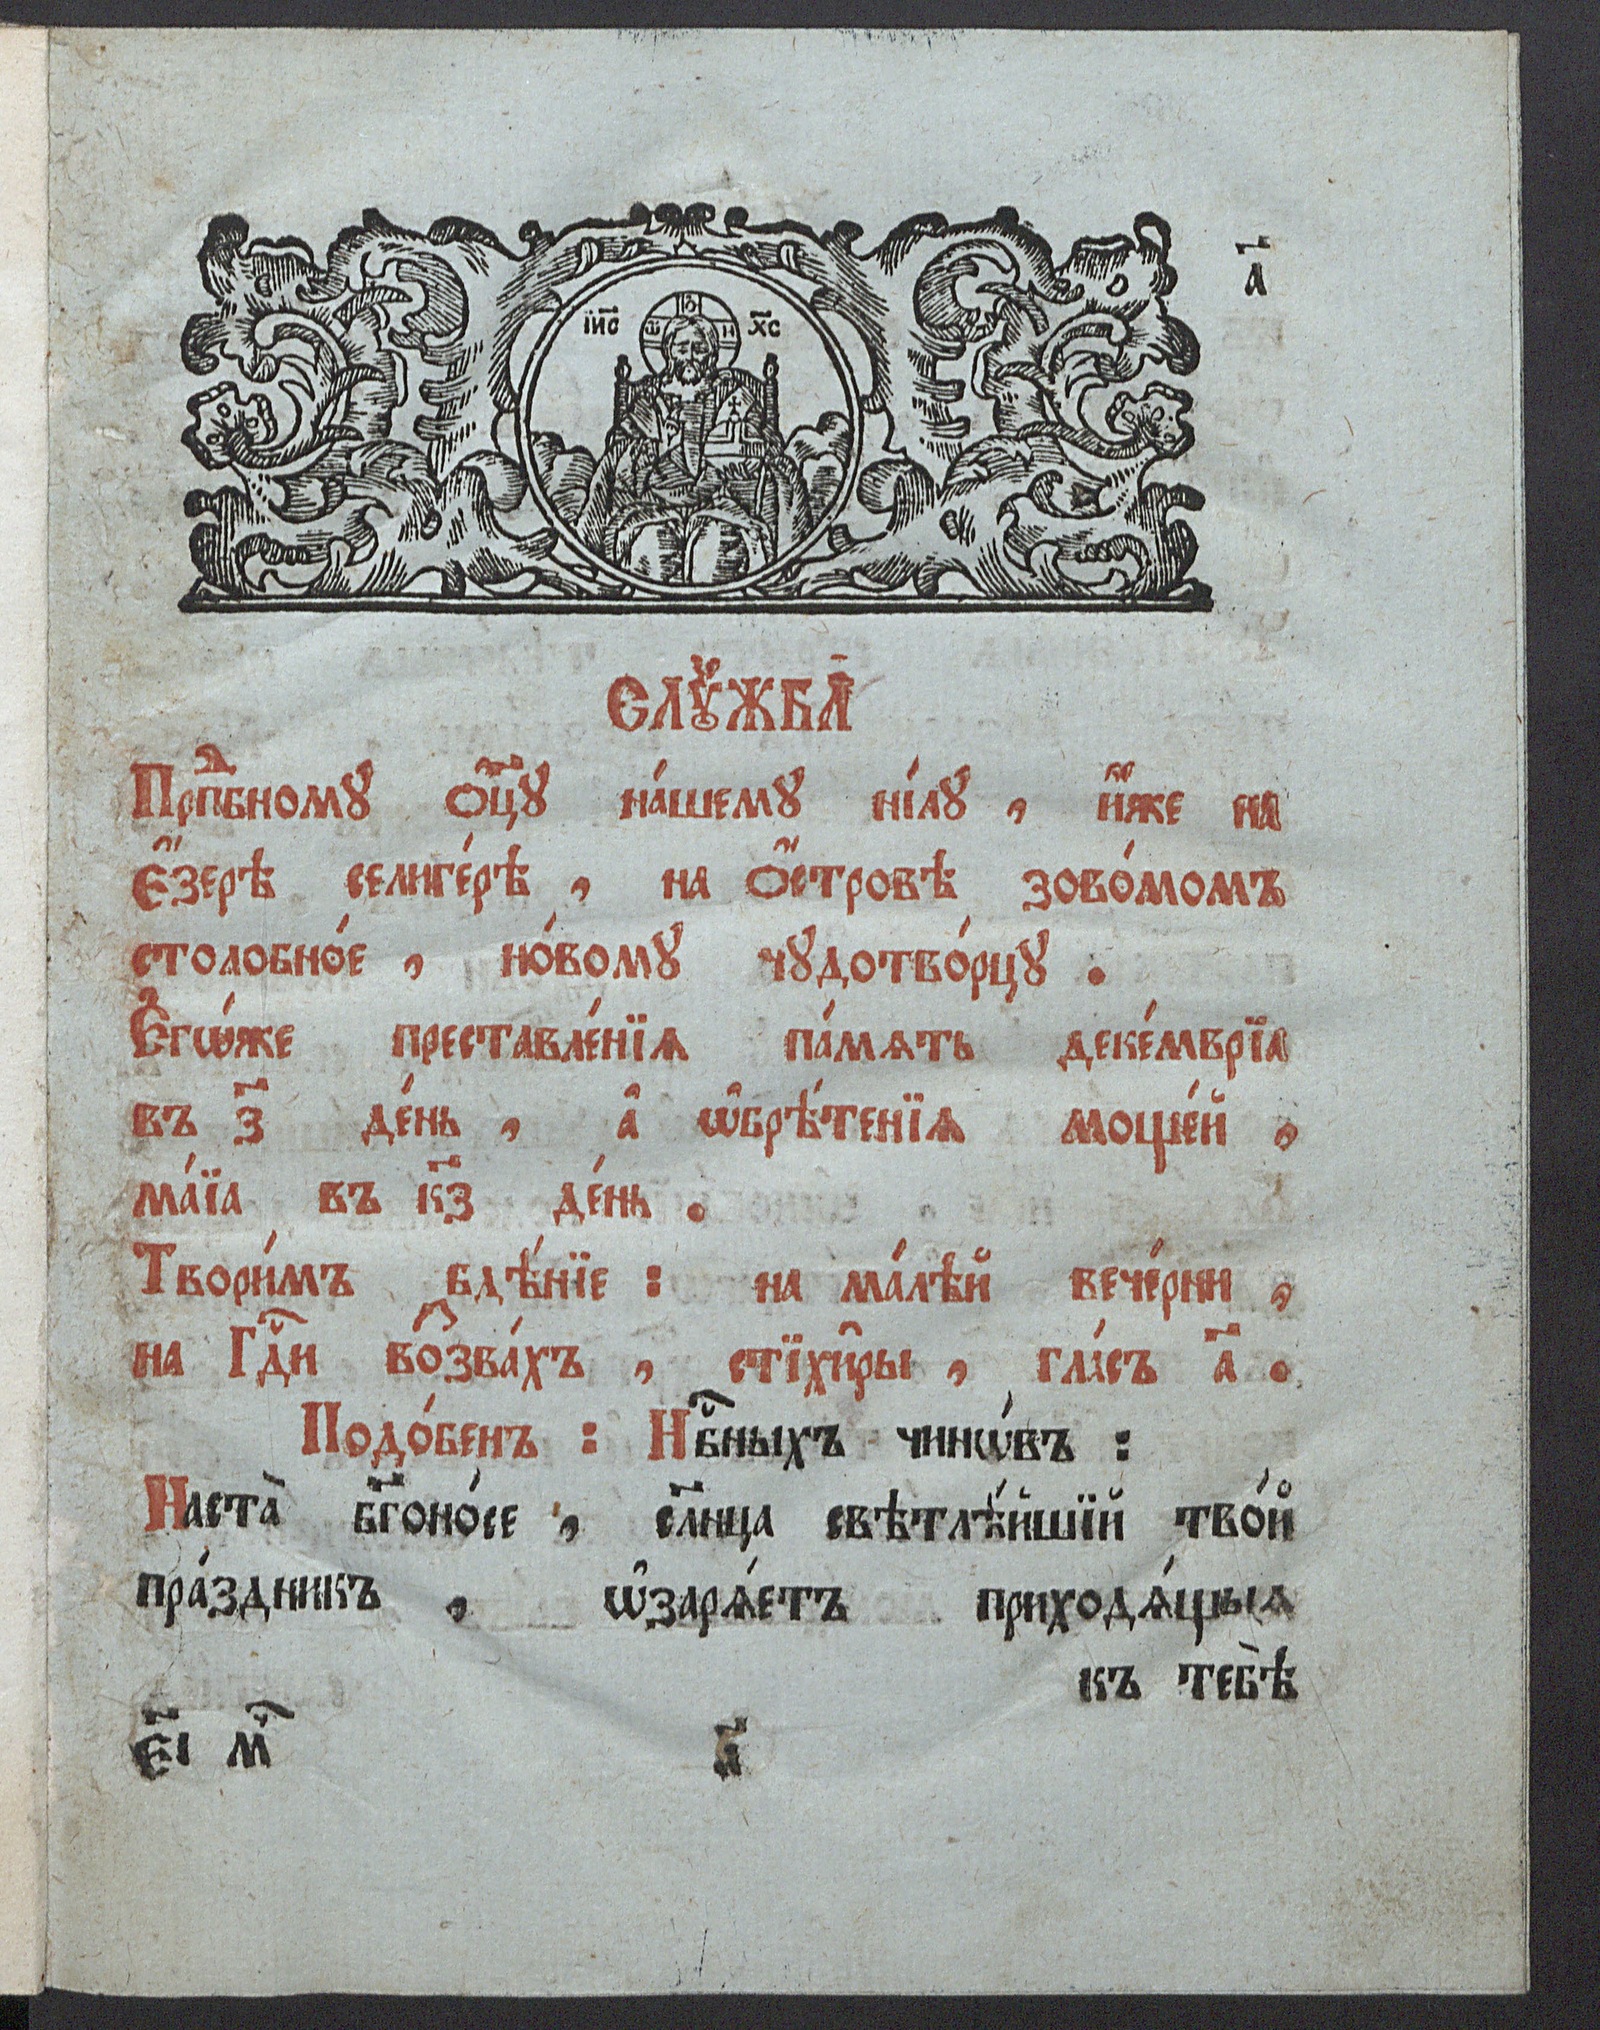 а҃
І҆и҃с ѽ о н х҃с
Слꙋ́жба̀
Прпⷣбномꙋ ѻ҆ц҃ꙋ на́шемꙋ ні́лꙋ , и҆́же на
є҆́зерѣ селиге́рѣ , на ѻ҆́стровѣ зово́момъ
столобно́е , но́вомꙋ чꙋдотво́рцꙋ .
Є҆гѡ́же преставле́нїѧ па́мѧть деке́мврїа
въ з҃ де́нь , а҆ ѡ҆брѣ́тенїѧ моще́й ,
ма́їа въ к҃з де́нь .
Твори́мъ бдѣ́нїе : на ма́лѣй вече́рни ,
на Гдⷭ҇и во̑зва́хъ , стїхи̑ры , гла́съ а҃ .
Подо́бенъ : Нбⷭ҇ныхъ чинѡ́въ :
Наста̀ бг҃оно́се , сл҃нца свѣтлѣ́йшїй тво́й
пра́здникъ , ѡ҆зарѧ́етъ приходѧ́щыѧ
къ тебѣ̀
є҃і мⷭ҇
н҃